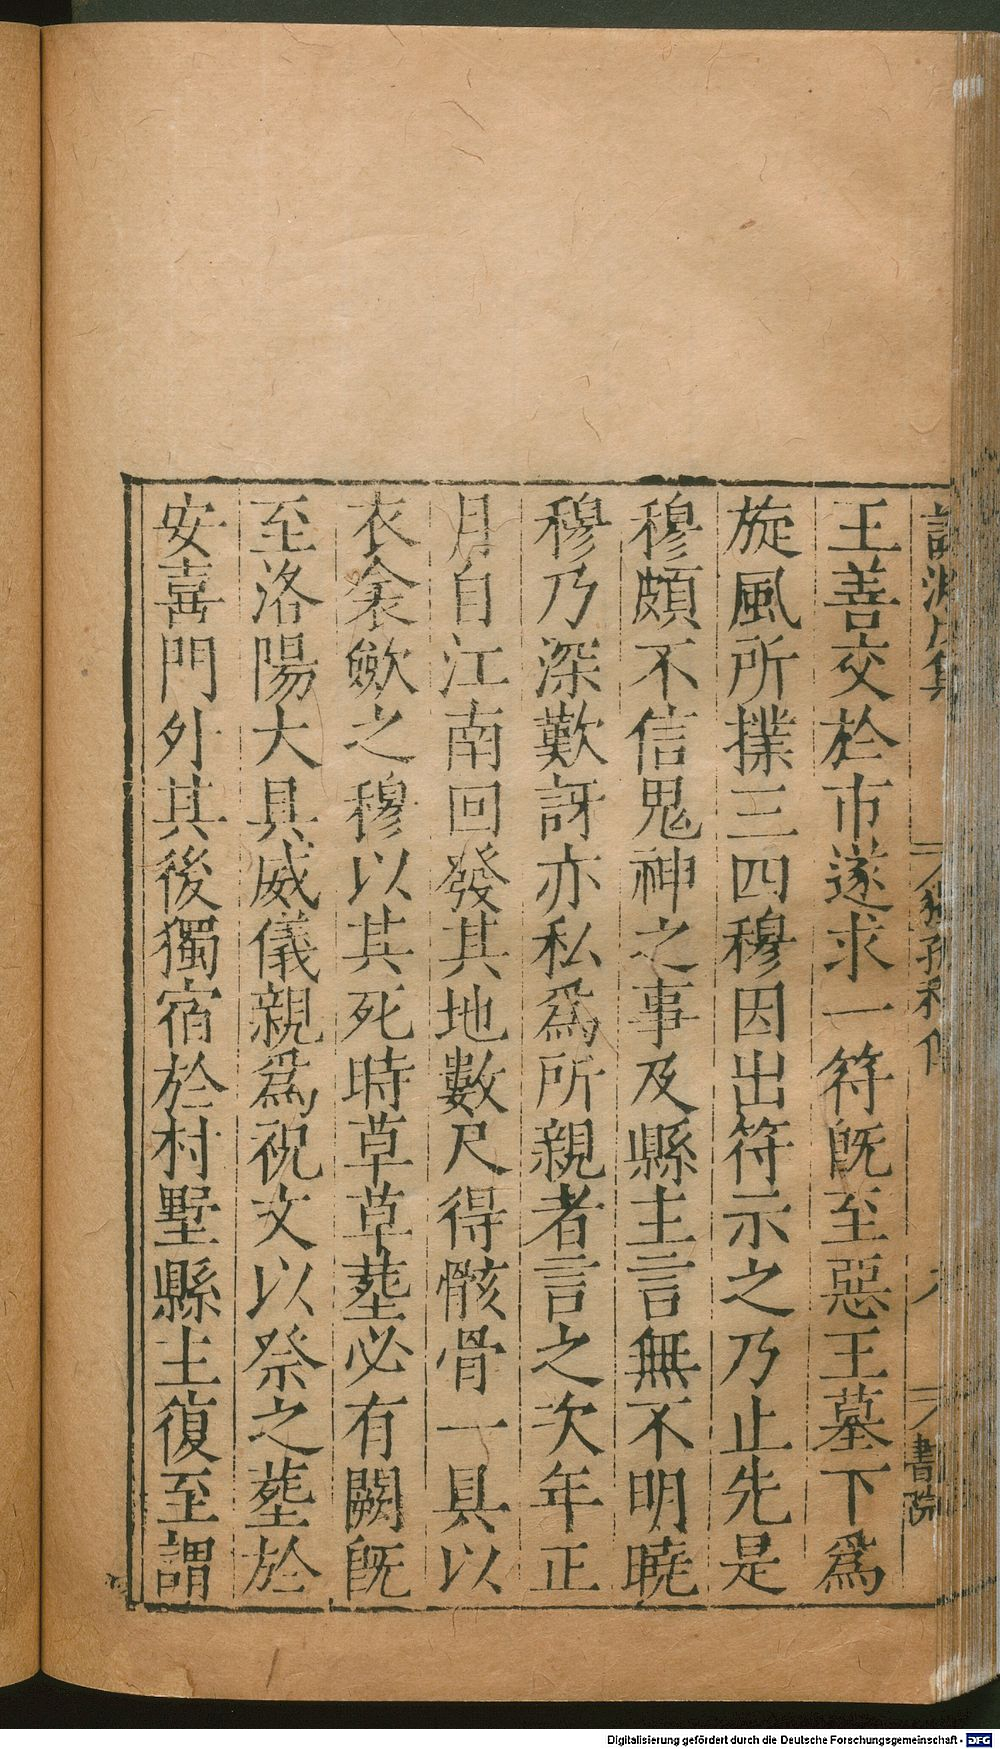 王善交於市遂求一符旣至惡王墓下爲
旋風所撲三四穆因出符示之乃止先是
穆頗不信鬼神之事及縣主言無不明曉
穆乃深歎訝亦私爲所親者言之次年正
月自江南回發其地數尺得骸骨一具以
衣衾歛之穆以其死時草草塟必有闕旣
至洛陽大具威儀親爲祝文以祭之塟於
安喜門外其後獨宿於村墅縣主復至謂
書院
Digitalisierung gefördert durch die Deutsche Forschungsgemeinschaft - DFG